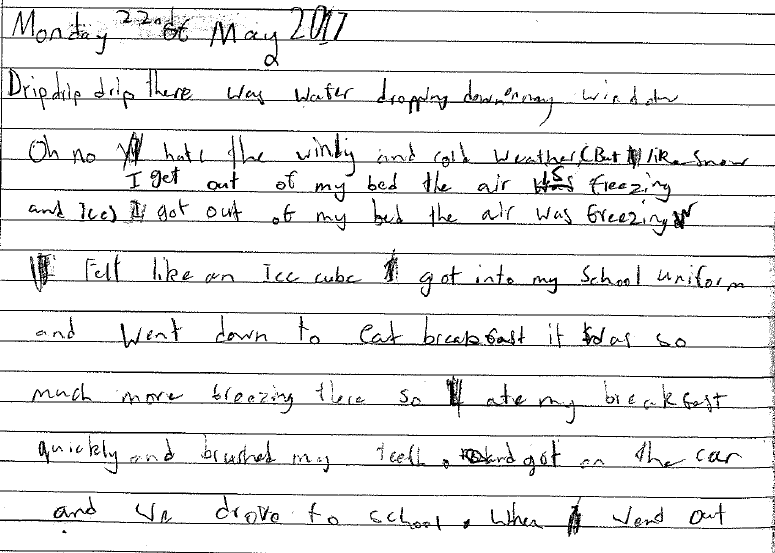 Monday 22nd of May 2017
Drip drip drip there was water dropping down on my window
Oh no I hate the windy and cold weather (But I like snow
I get out of my bed the air is freezing
and Ice) I got out of my bed the air was freezing
I Felt like an Ice cube I got into my School uniform
and Went down to Eat breakfast it was so
much more freezing there so I ate my breakfast
quickly and brushed my teeth. and got on the car
and We drove to school. When I Wend out